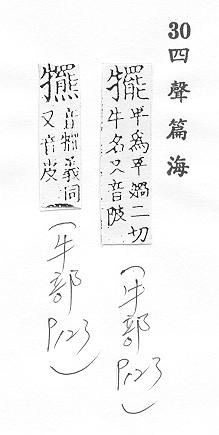 30
四聲篇海
犤
卑爲平媧二切
牛名又音陂
(牛部
P.123)
音犤義同
又音皮
(牛部
P.123)